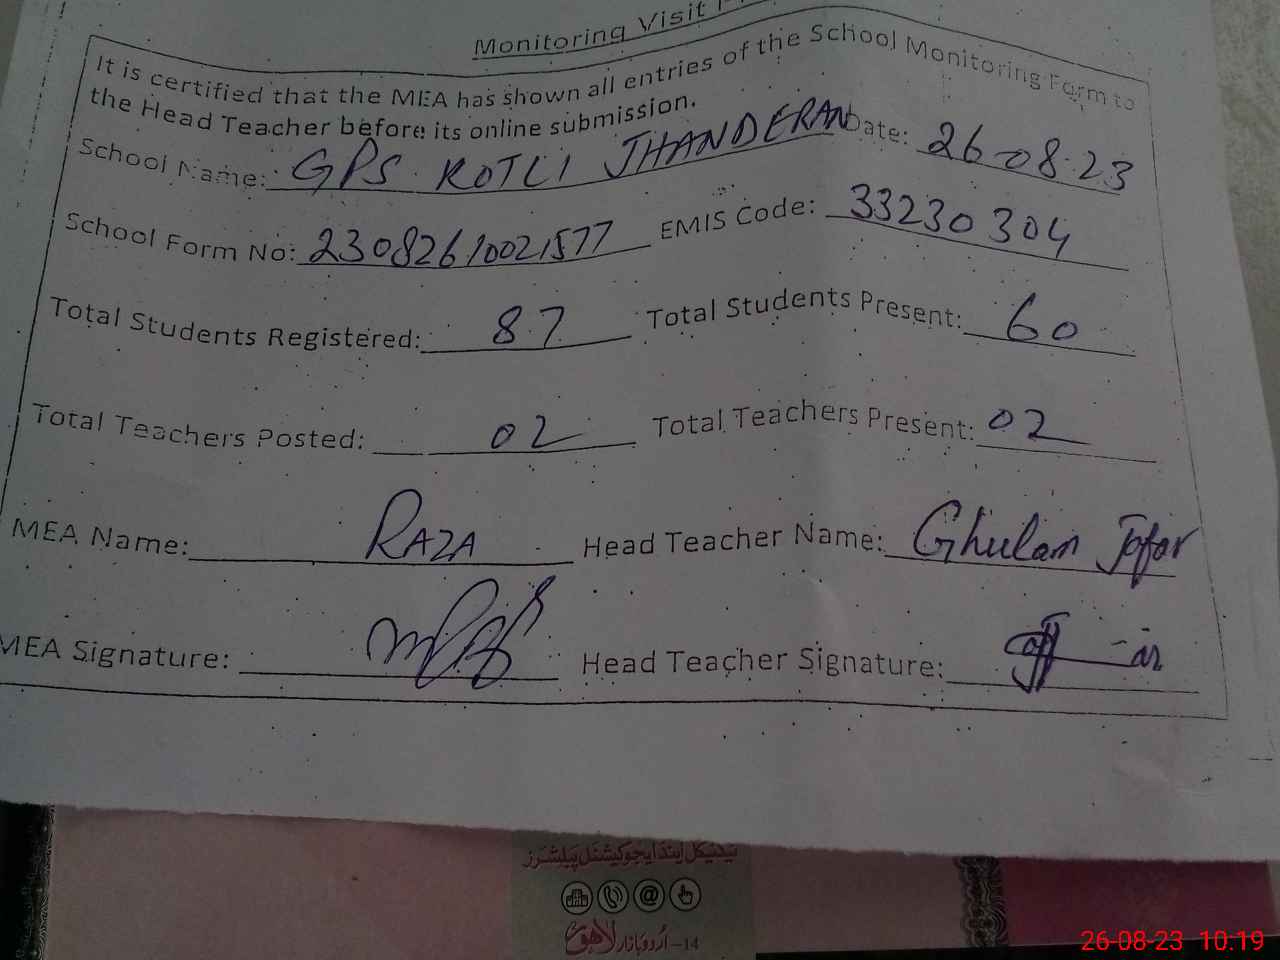 Monitoring Visit
It is certified that the MEA has shown all entries of the School Monitoring Form to
the Head Teacher before its online submission.
School Name: GPS KOTLI JHANDERAN Date: 26-08-23
School Form No: 23082610021577 EMIS Code: 33230304
Total Students Registered: 87 Total Students Present: 60
Total Teachers Posted: 02 Total Teachers Present: 02
MEA Name: RAZA Head Teacher Name: Ghulam Jafar
MEA Signature: Head Teacher Signature:
ٹیکنیکل اینڈ ایجوکیشنل پبلشرز
14-اُردو بازار لاہور
26-08-23 10:19